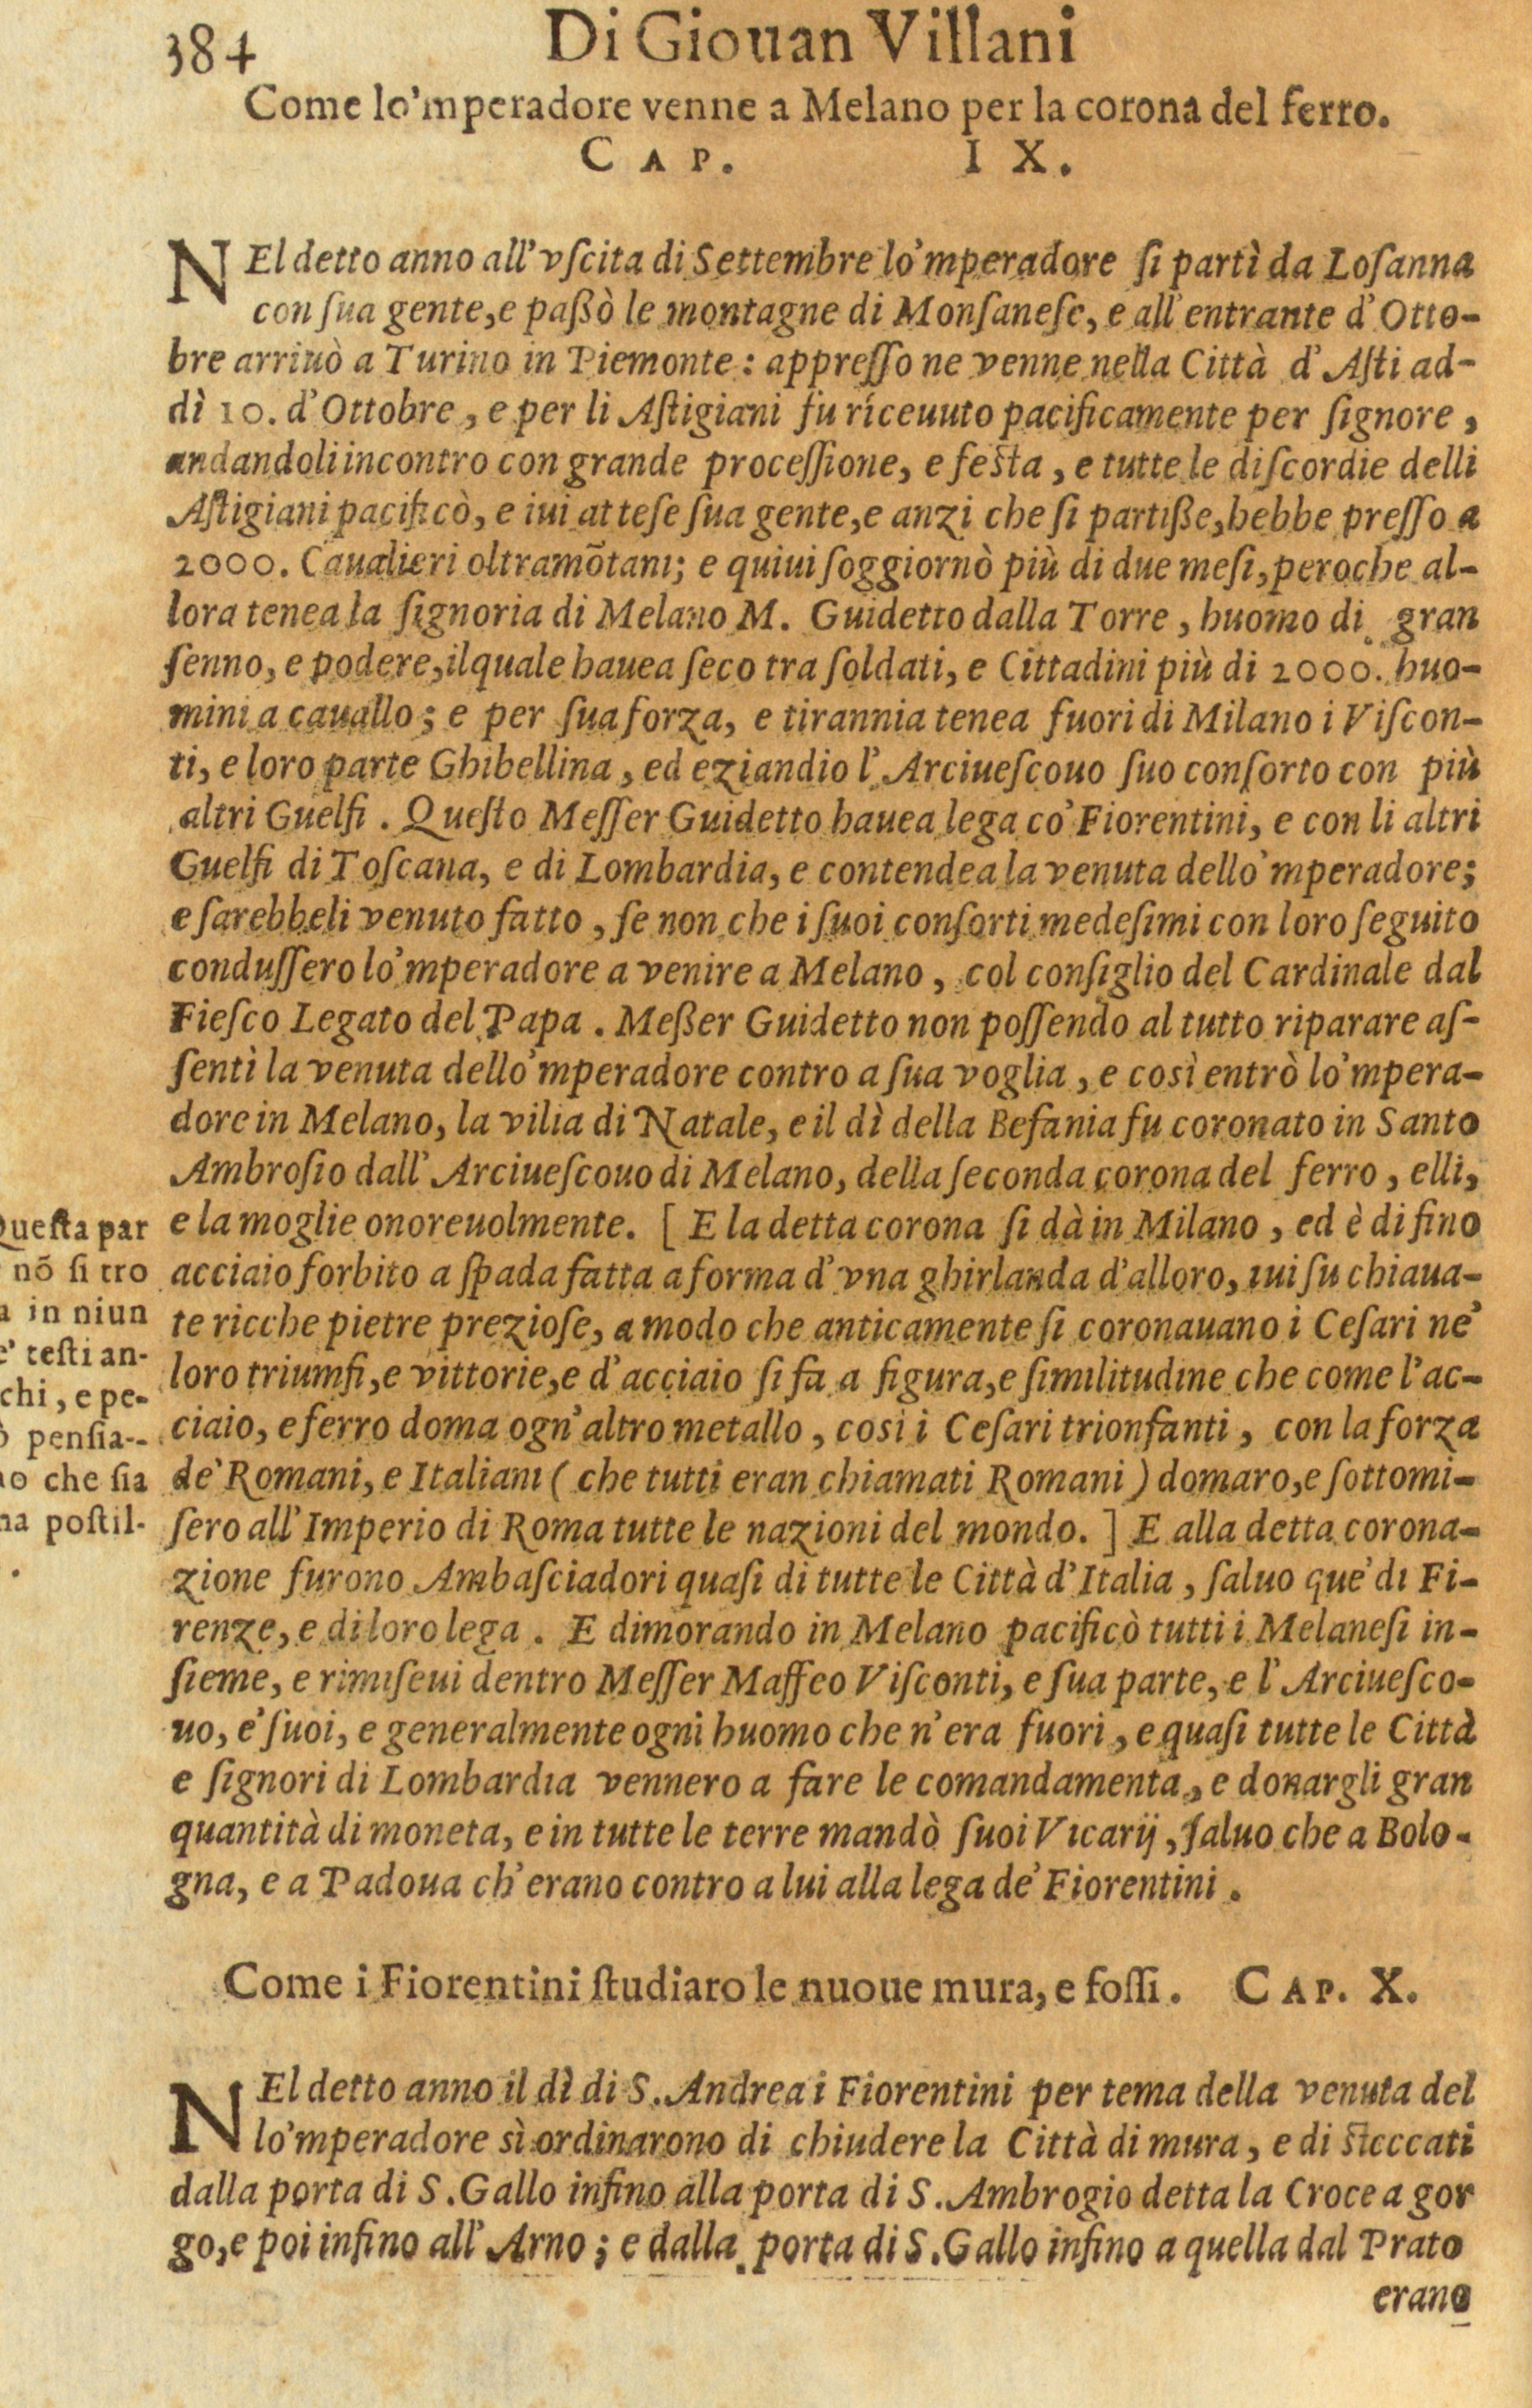 384 Di Giouan Villani
Come lo'mperadore venne a Melano per la corona del ferro.
CAP. IX.
NEl detto anno all'vſcita di Settembre lo'mperadore ſi partì da Loſanna
con ſua gente, e paßò le montagne di Monſaneſe, e all'entrante d'Otto-
bre arriuò a Turino in Piemonte: appreſſo ne venne nella Città d'Aſti ad-
dì 10. d'Ottobre, e per li Aſtigiani fu riceuuto pacificamente per ſignore,
andandoli incontro con grande proceſſione, e feſta, e tutte le diſcordie delli
Aſtigiani pacificò, e iui atteſe ſua gente, e anzi che ſi partiße, hebbe preſſo a
2000. Caualieri oltramõtani; e quiui ſoggiornò più di due meſi, peroche al-
lora tenea la ſignoria di Melano M. Guidetto dalla Torre, huomo di gran
ſenno, e podere, ilquale hauea ſeco tra ſoldati, e Cittadini più di 2000. huo-
mini a cauallo; e per ſua forza, e tirannia tenea fuori di Milano i Viſcon-
ti, e loro parte Ghibellina, ed eziandio l'Arciueſcouo ſuo conſorto con più
altri Guelfi. Queſto Meſſer Guidetto hauea lega co' Fiorentini, e con li altri
Guelfi di Toſcana, e di Lombardia, e contendea la venuta dello'mperadore;
e ſarebbeli venuto fatto, ſe non che i ſuoi conſorti medeſimi con loro ſeguito
conduſſero lo'mperadore a venire a Melano, col conſiglio del Cardinale dal
Fieſco Legato del Papa. Meßer Guidetto non poſſendo al tutto riparare aſ-
ſentì la venuta dello'mperadore contro a ſua voglia, e così entrò lo'mpera-
dore in Melano, la vilia di Natale, e il dì della Befania fu coronato in Santo
Ambroſio dall'Arciueſcouo di Melano, della ſeconda corona del ferro, elli,
e la moglie onoreuolmente. [E la detta corona ſi dà in Milano, ed è di fino
acciaio forbito a ſpada fatta a forma d'vna ghirlanda d'alloro, iui ſu chiaua-
te ricche pietre prezioſe, a modo che anticamente ſi coronauano i Ceſari ne'
loro triumfi, e vittorie, e d'acciaio ſi fa a figura, e ſimilitudine che come l'ac-
ciaio, e ferro doma ogn'altro metallo, cosi i Ceſari trionfanti, con la forza
de' Romani, e Italiani (che tutti eran chiamati Romani) domaro, e ſottomi-
ſero all'Imperio di Roma tutte le nazioni del mondo.] E alla detta corona-
zione furono Ambaſciadori quaſi di tutte le Città d'Italia, ſaluo que' di Fi-
renze, e di loro lega. E dimorando in Melano pacificò tutti i Melaneſi in-
ſieme, e rimiſeui dentro Meſſer Maffeo Viſconti, e ſua parte, e l'Arciueſco-
uo, e' ſuoi, e generalmente ogni huomo che n'era fuori, e quaſi tutte le Città
e ſignori di Lombardia vennero a fare le comandamenta, e donargli gran
quantità di moneta, e in tutte le terre mandò ſuoi Vicarij, ſaluo che a Bolo-
gna, e a Padoua ch'erano contro a lui alla lega de' Fiorentini.
Queſta par
nõ ſi tro
a in niun
e' teſti an-
chi, e pe-
ò penſia-
no che ſia
na poſtil-
.
Come i Fiorentini ſtudiaro le nuoue mura, e foſſi. CAP. X.
NEl detto anno il dì di S. Andrea i Fiorentini per tema della venuta del
lo'mperadore sì ordinarono di chiudere la Città di mura, e di ſteccati
dalla porta di S. Gallo infino alla porta di S. Ambrogio detta la Croce a gor
go, e poi infino all'Arno; e dalla porta di S. Gallo infino a quella dal Prato
erano